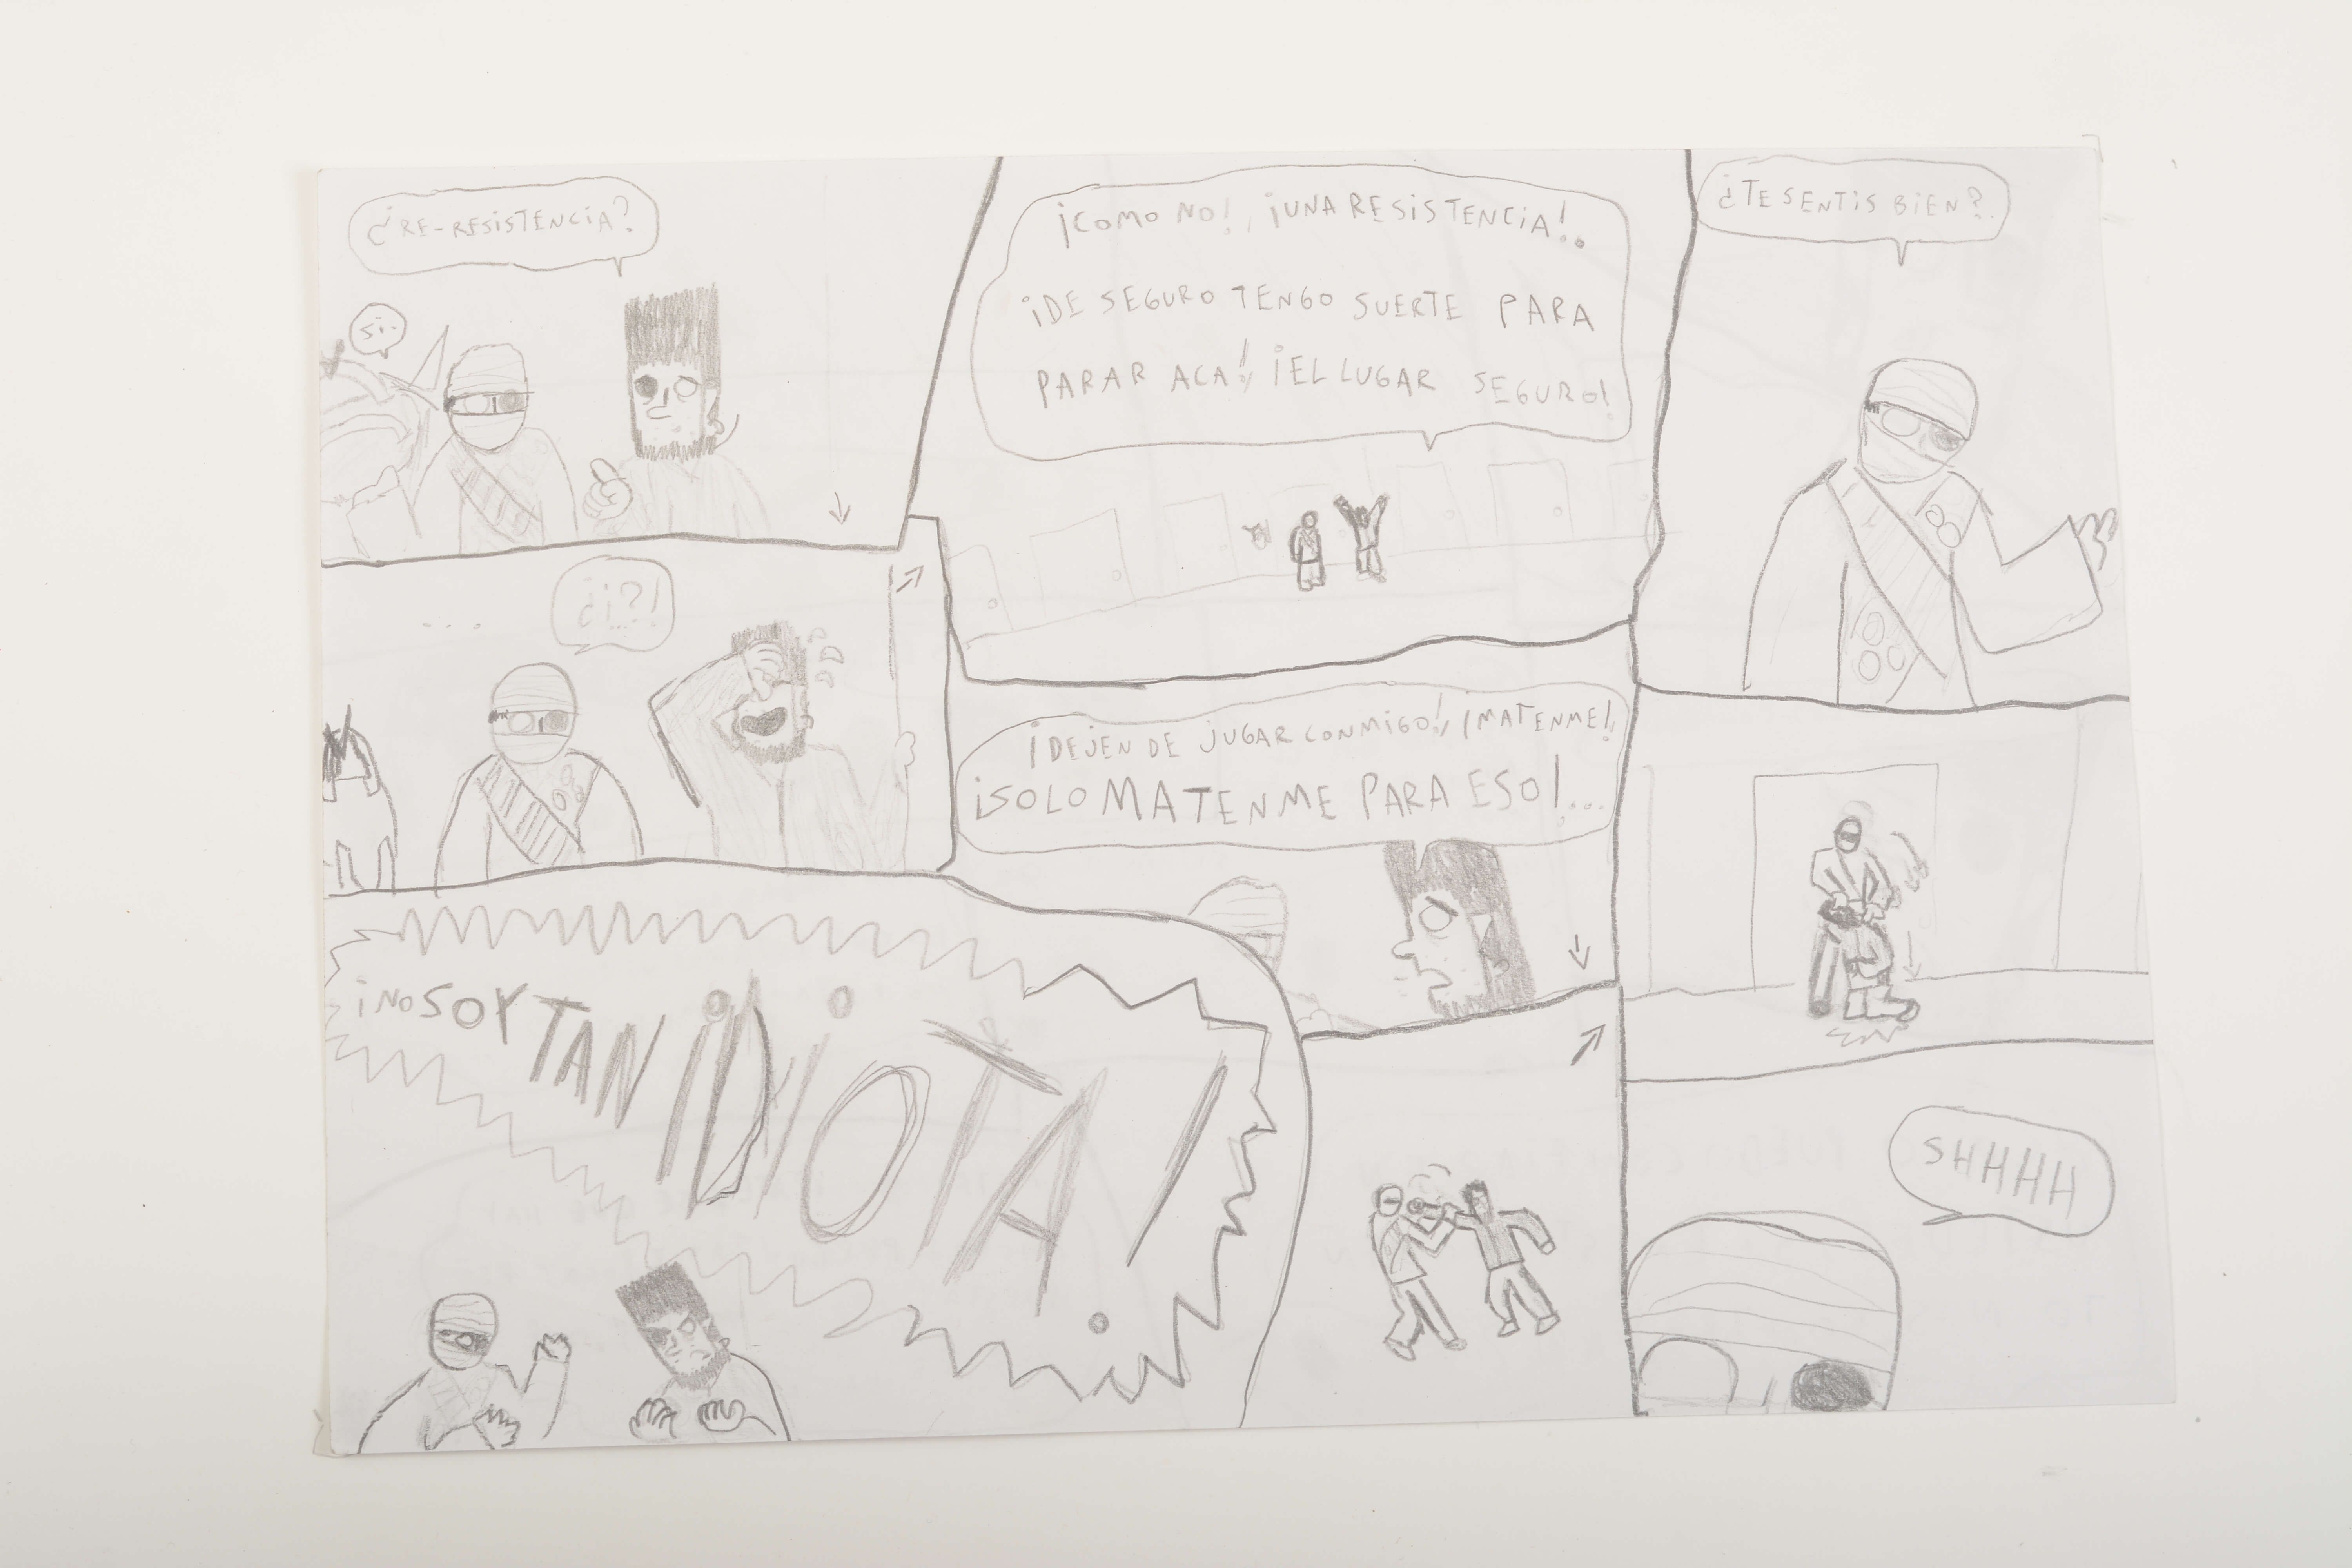 ¿RE-RESISTENCIA?
SI..
...
¿¡..?!
¡COMO NO!, ¡UNA RESISTENCIA!.
¡DE SEGURO TENGO SUERTE PARA
PARAR ACA!, ¡EL LUGAR SEGURO!
¿TE SENTIS BIEN?
¡DEJEN DE JUGAR CONMIGO!, ¡MATENME!,
¡SOLO MATENME PARA ESO!...
¡NO SOY TAN IDIOTA!
SHHHH